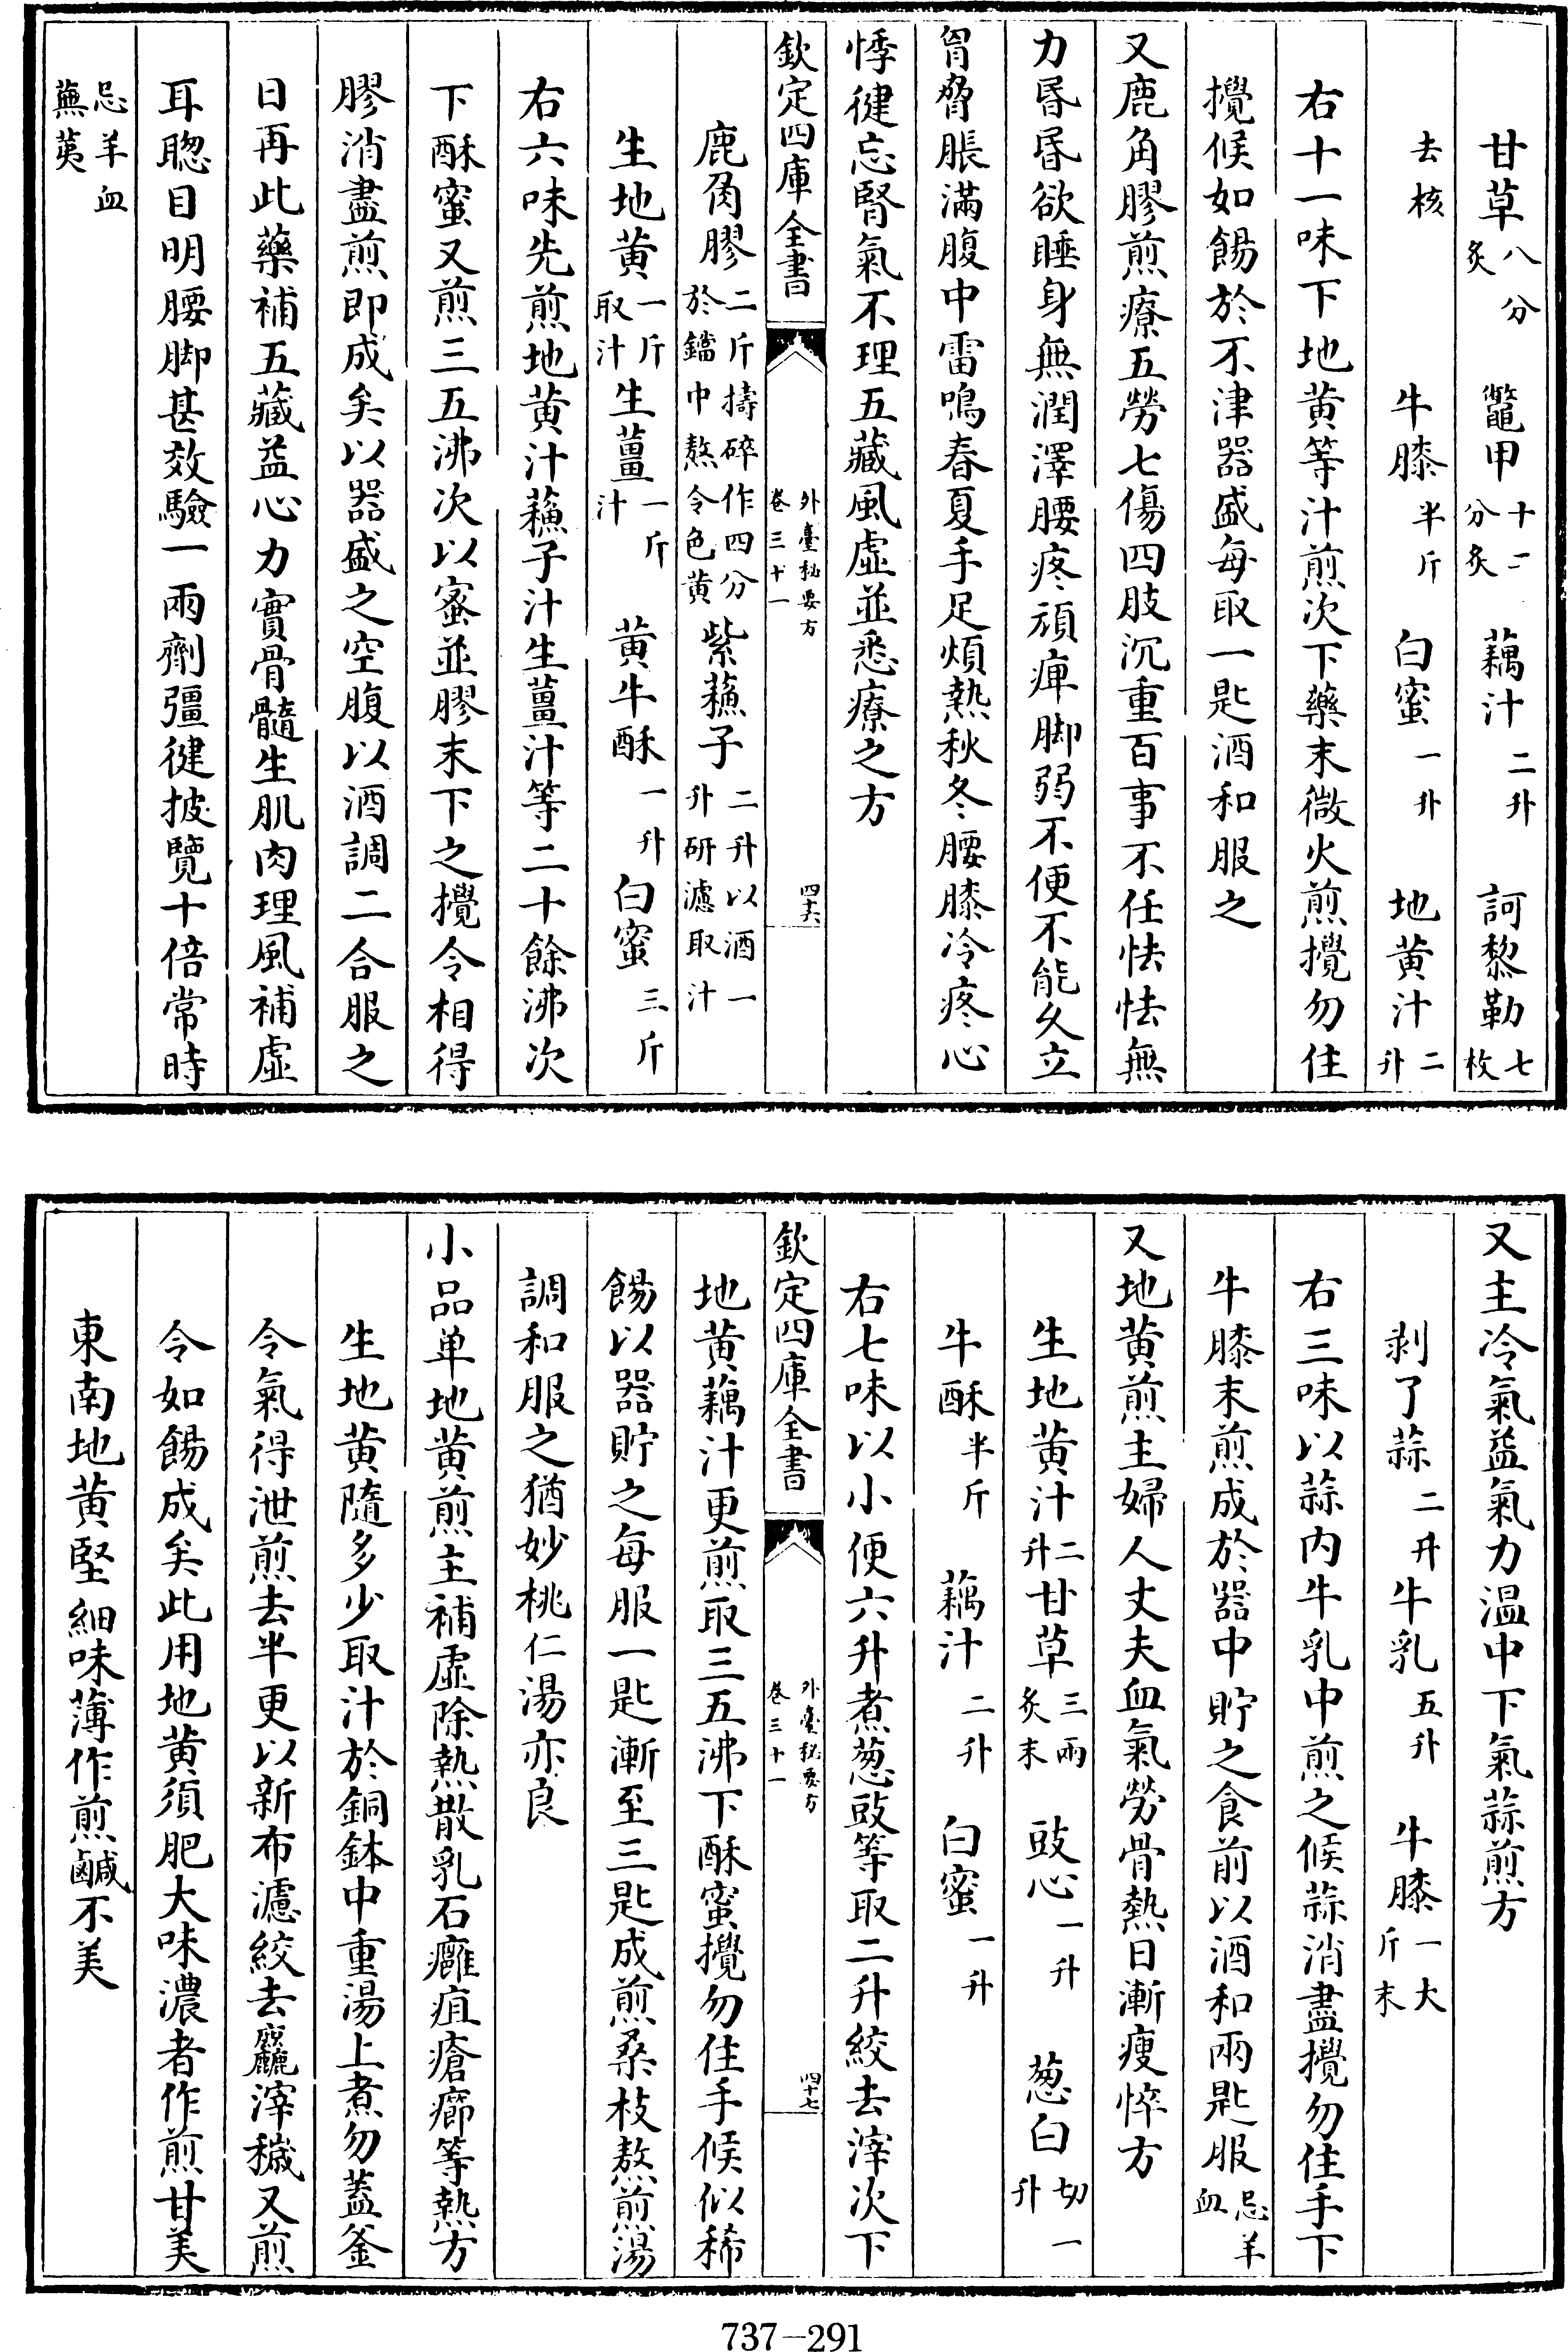 甘草八分炙 鼈甲十二分炙 藕汁二升 訶黎勒七枚
去核 牛膝半斤 白蜜一升 地黄汁二升
右十一味下地黄等汁煎次下藥末微火煎攪勿住
攪候如餳於不津器盛每取一匙酒和服之
又鹿角膠煎療五勞七傷四肢沉重百事不任怯怯無
力昬昬欲睡身無潤澤腰疼頑痺脚弱不便不能久立
胷脅脹滿腹中雷鳴春夏手足煩熱秋冬腰膝冷疼心
悸健忘腎氣不理五藏風虛並悉療之方
欽定四庫全書 外臺秘要方卷三十一 四十六
鹿角膠二斤擣碎作四分於鐺中熬令色黄 紫蘓子二升以酒一升研濾取汁
生地黄一斤取汁 生薑一斤汁 黄牛酥一升 白蜜三斤
右六味先煎地黄汁蘓子汁生薑汁等二十餘沸次
下酥蜜又煎三五沸次以蜜並膠末下之攪令相得
膠消盡煎即成矣以器盛之空腹以酒調二合服之
日再此藥補五藏益心力實骨髓生肌肉理風補虛
耳聰目明腰脚甚效驗一兩劑彊健披覽十倍常時
忌羊血蕪荑
又主冷氣益氣力溫中下氣蒜煎方
剥了蒜二升 牛乳五升 牛膝一大斤末
右三味以蒜内牛乳中煎之候蒜消盡攪勿住手下
牛膝末煎成於器中貯之食前以酒和兩匙服忌羊血
又地黄煎主婦人丈夫血氣勞骨熱日漸瘦悴方
生地黄汁二升 甘草三兩炙末 豉心一升 葱白切一升
牛酥半斤 藕汁二升 白蜜一升
右七味以小便六升煮葱豉等取二升絞去滓次下
欽定四庫全書 外臺秘要方卷三十一 四十七
地黄藕汁更煎取三五沸下酥蜜攪勿住手候似稀
餳以器貯之每服一匙漸至三匙成煎桑枝熬煎湯
調和服之猶妙桃仁湯亦良
小品单地黄煎主補虛除熱散乳石癰疽瘡癤等熱方
生地黄隨多少取汁於銅鉢中重湯上煮勿蓋釜
令氣得泄煎去半更以新布濾絞去麤滓穢又煎
令如餳成矣此用地黄須肥大味濃者作煎甘美
東南地黄堅細味薄作煎鹹不美
737—291